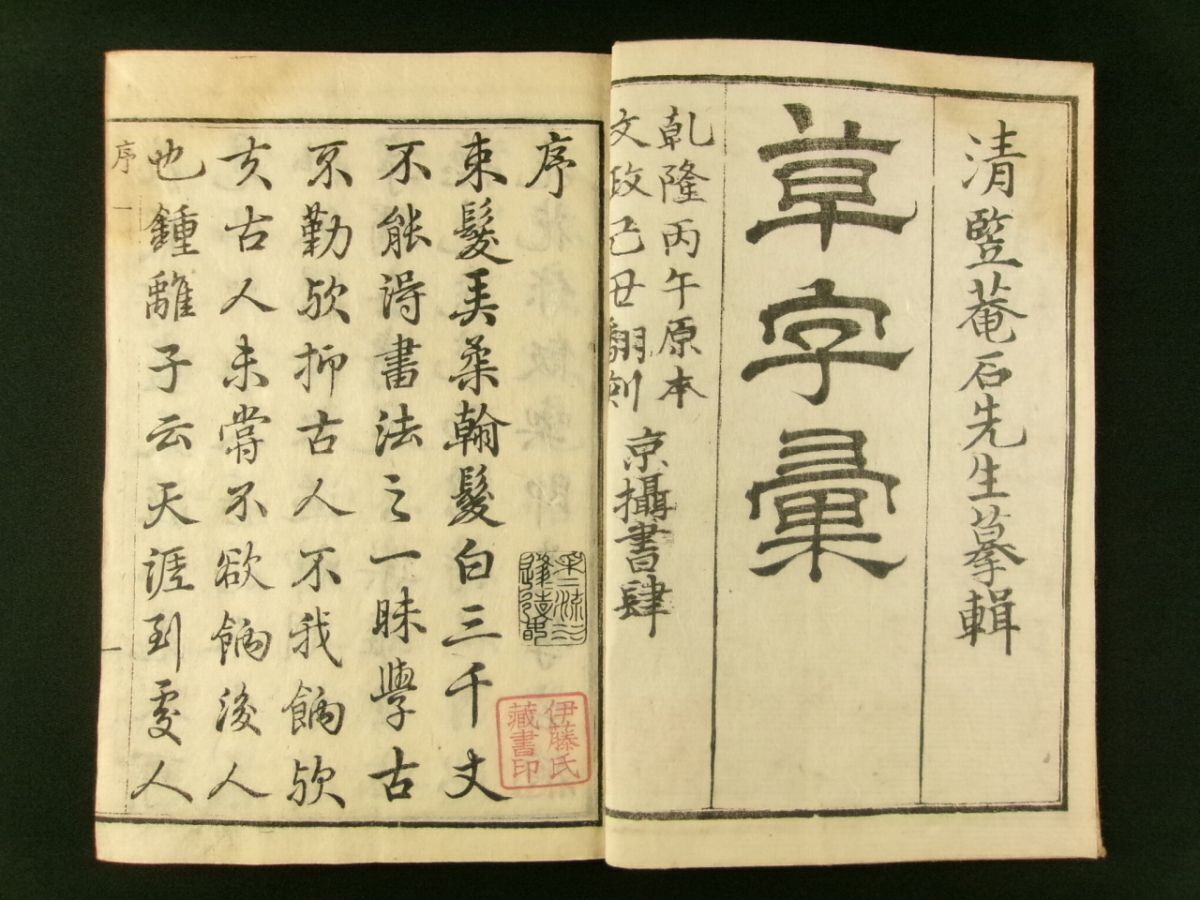 清豎菴石先生摹輯
草字彙
乾隆丙午原本
文政己丑翻刻
京攝書肆
序
束髮弄柔翰髮白三千丈
不能得書法之一昧學古
不勤歟抑古人不我餉歟
亥古人未嘗不欲餉後人
也鍾離子云天涯到處人
序
一
伊藤氏
藏書印